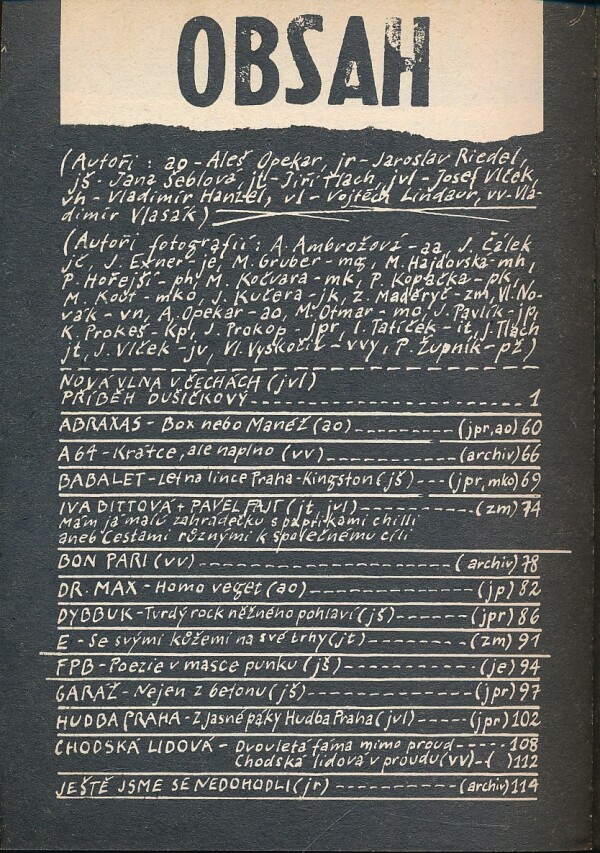 OBSAH
(Autoři : ao - Aleš Opekar, jr - Jaroslav Riedel,
jš - Jana Šeblová, jt - Jiří Tlach, jvl - Josef Vlček,
vh - Vladimír Hanzel, vl - Vojtěch Lindaur, vv - Vla-
dimír Vlasák)
(Autoři fotografií : A. Ambrožová - aa, J. Čálek
jč, J. Exner - je, M. Gruber - mg, M. Hajdovská - mh,
P. Hořejší - ph, M. Kočvara - mk, P. Kopačka - pk,
M. Kout - mko, J. Kučera - jk, Z. Maděryč - zm, Vl. No-
vák - vn, A. Opekar - ao, M. Otmar - mo, J. Pavlík - jp,
K. Prokeš - kp, J. Prokop - jpr, I. Tatíček - it, J. Tlach
jt, J. Vlček - jv, Vl. Vyskočil - vvy, P. Župník - pž)
NOVÁ VLNA V ČECHÁCH (jvl)
PŘÍBĚH DUŠIČKOVÝ 1
ABRAXAS - Box nebo Manéž (ao) (jpr, ao) 60
A 64 - Krátce, ale naplno (vv) (archiv) 66
BABALET - Let na lince Praha - Kingston (jš) (jpr, mko) 69
IVA BITTOVÁ + PAVEL FAJT (jt, jvl) (zm) 74
Mám já malú zahrádečku s papřikami chilli
aneb Cestami různými k společnému cíli
BON PARI (vv) (archiv) 78
DR. MAX - Homo veget (ao) (jp) 82
DYBBUK - Tvrdý rock něžného pohlaví (jš) (jpr) 86
E - Se svými kůžemi na své trhy (jt) (zm) 91
FPB - Poezie v masce punku (jš) (je) 94
GARÁŽ - Nejen z betonu (jš) (jpr) 97
HUDBA PRAHA - Z Jasné páky Hudba Praha (jvl) (jpr) 102
CHODSKÁ LIDOVÁ - Dvouletá fáma mimo proud 108
Chodská lidová v proudu (vv) ( ) 112
JEŠTĚ JSME SE NEDOHODLI (jr) (archiv) 114